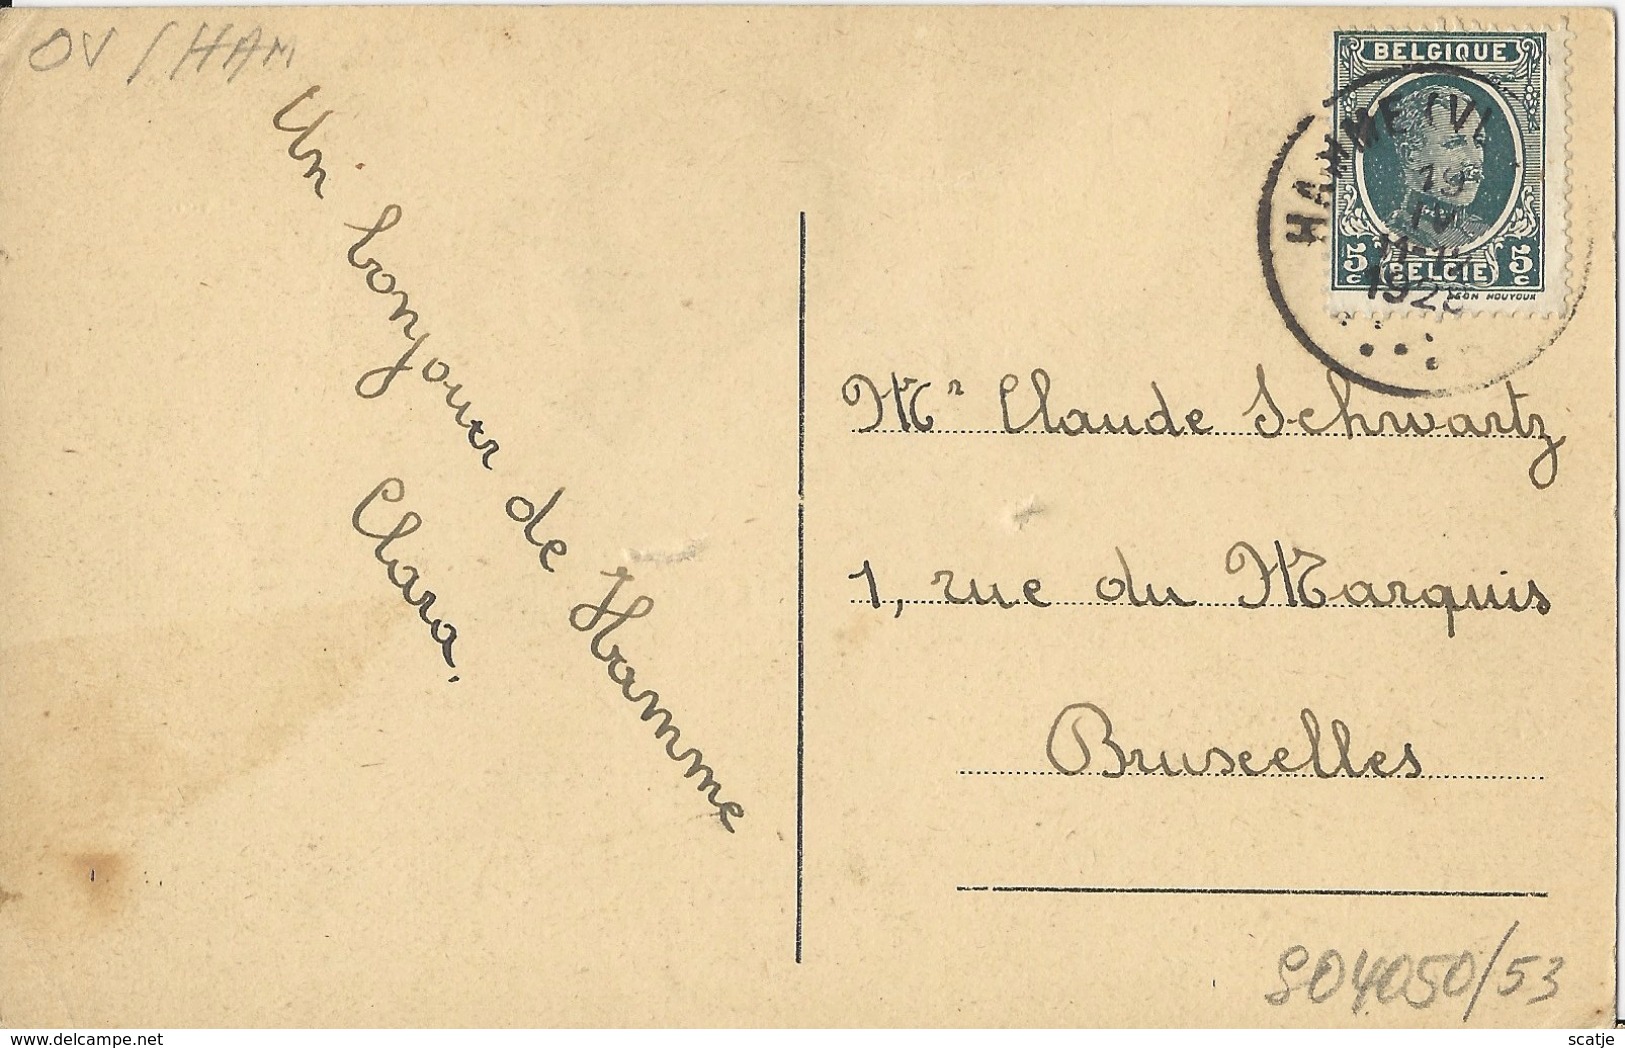 OV / HAM
Un bonjour de Hamme
Clara.
BELGIQUE
HAMME (VL
19
IV
192
5c BELGIË 5c
HOUYOUX
Mr Claude Schwartz
1, rue du Marquis
Bruxelles
S04050/53
delcampe.net
scatje